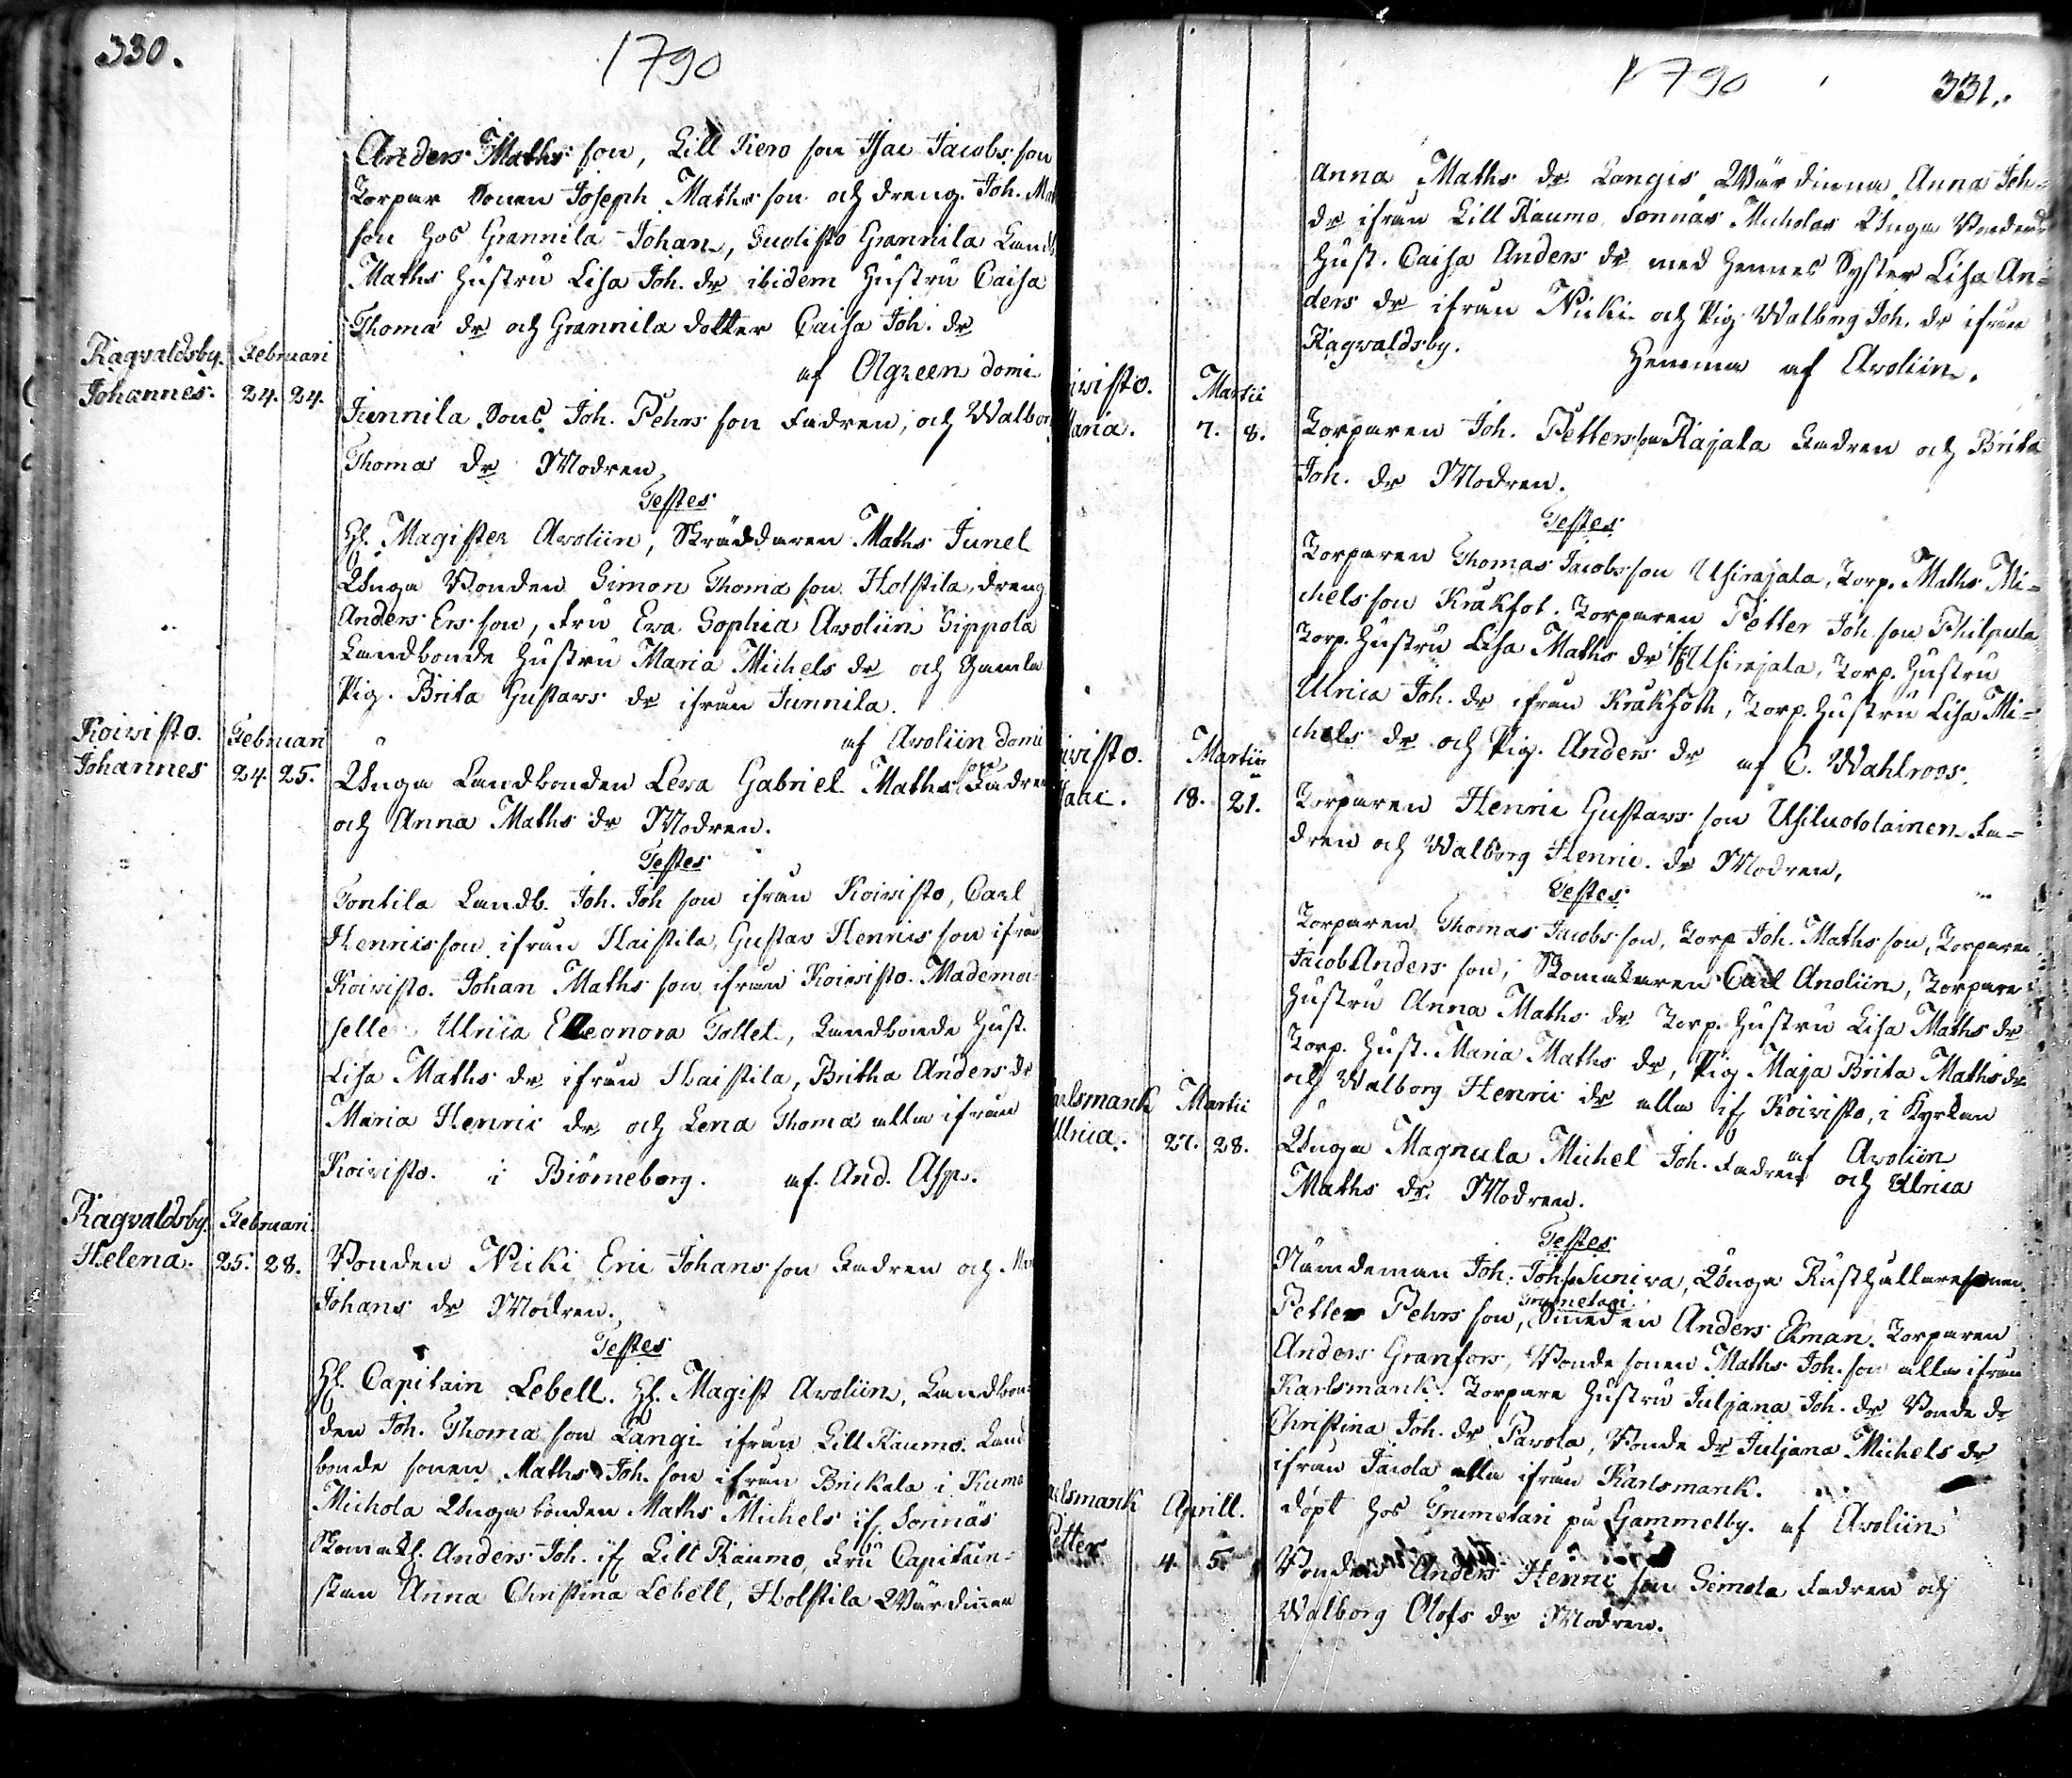 330.
1790
Anders Maths son, Lill Kero son Isac Jacobs son
Torpar Sonen Joseph Maths son och dreng. Joh. Mat
son hos Grannila Johan, Suolisto Grannila Landb.
Maths hustru Lisa Joh. dr ibidem hustru Caisa
Thoma dr och Grannila dotter Caisa Joh. dr
af Olgreen domi
Ragvaldsby. Februari
Johannes. 24. 24.
Junnila Sons Joh. Pehrs son Fadren, och Walbor
Thoma dr Modren,
Testes
H. Magister Avoliin, Skräddaren Maths Junel
Unga Bonden Simon Thoma son Holstila, dreng
Anders Ers son, fru Eva Sophia Avoliin Sippola
Landbonde hustru Maria Michels dr och Gamla
Pig. Brita Gustavs dr ifrån Junnila.
af Avoliin domi
Koivisto. Februari
Johannes 24. 25.
Unga Landbonden Leva Gabriel Maths son Fadren
och Anna Maths dr Modren.
Testes
Tontila Landb. Joh. Joh son ifrån Koivisto, Carl
Henrics son ifrån Haistila, Gustav Henrics son ifrån
Koivisto. Johan Maths son ifrån Koivisto. Mademoi-
selle Ulrica Eleonora Tollet, Landbonde Hust.
Lisa Maths dr ifrån Haistila, Britha Anders dr
Maria Henric dr och Lena Thoma alla ifrån
Koivisto. i Biörneborg. af And. Asp.
Ragvaldsby. Februari.
Helena. 25. 28.
Bonden Nicki Eric Johans son Fadren och
Johans dr Modren.
Testes
H. Capitain Lebell. H. Magist Avoliin, Landbon-
den Joh. Thoma son Langi ifrån Lill Raumo. Land
bonde sonen Maths Joh. son ifrån Brickala i Kumo
Michola Unga bonden Maths Michels if. Sonnäs
Skomak. Anders Joh. if Lill Raumo, Fru Capitain-
skan Anna Christina Lebell, Holstila Wärdinnan
1790
331.
Anna Maths dr Langis Wärdinna Anna Joh-
dr ifrån Lill Raumo Sonnäs Micholas Unga Bondens
Hust. Caisa Anders dr med hennes Syster Lisa An-
ders dr ifrån Nicki och Pig Walborg Joh. dr ifrån
Ragvaldsby. Hemma af Avoliin.
ivisto. Martii
aria. 7. 8.
Torparen Joh. Petters son Rajala Fadren och Brita
Joh. dr Modren.
Testes
Torparen Thomas Jacobs son Usirajala, Torp. Maths Mi-
chels son Kråkfot. Torparen Petter Joh son Philpula
Torp. hustru Lisa Maths dr if Usirajala, Torp. hustru
Ulrica Joh. dr ifrån Kråkfoth, Torp. hustru Lisa Mi-
chels dr och Pig. Anders dr af C. Wahlroos.
ivisto. Martii
saac. 18. 21.
Torparen Henric Gustavs son Usiluototainen Fa-
dren och Walborg Henric. dr Modren,
Testes
Torparen Thomas Jacobs son, Torp Joh. Maths son, Torparen
Jacob Anders son, Skomakaren Carl Anoliin, Torpare
hustru Anna Maths dr Torp. hustru Lisa Maths dr
Torp. hust. Maria Maths dr, Pig Maja Brita Maths dr
och Walborg Henric dr alla if Koivisto, i Kyrkan
af Avoliin
arlsmark Martii
Ulrica. 27. 28.
Unga Magnula Michel Joh. Fadren och Ulrica
Maths dr. Modren.
Testes
Nämdeman Joh. Joh.s Suniva, Unga Rusthållaresonen
Petter Pehrs son, Grumetari Smeden Anders Ekman. Torparen
Anders Granfors, Bonde sonen Maths Joh. son alla ifrån
Karlsmark. Torpare hustru Juljana Joh. dr Bonde dr
Christina Joh. dr Pavola, Bonde dr Juljana Michels dr
ifrån Jacola alla ifrån Karlsmark.
döpt hos Grumetari på Gammelby. af Avoliin
arlsmark Aprill.
Petter 4. 5.
Bonden Anders Henric son Simola Fadren och
Walborg Olofs dr Modren.